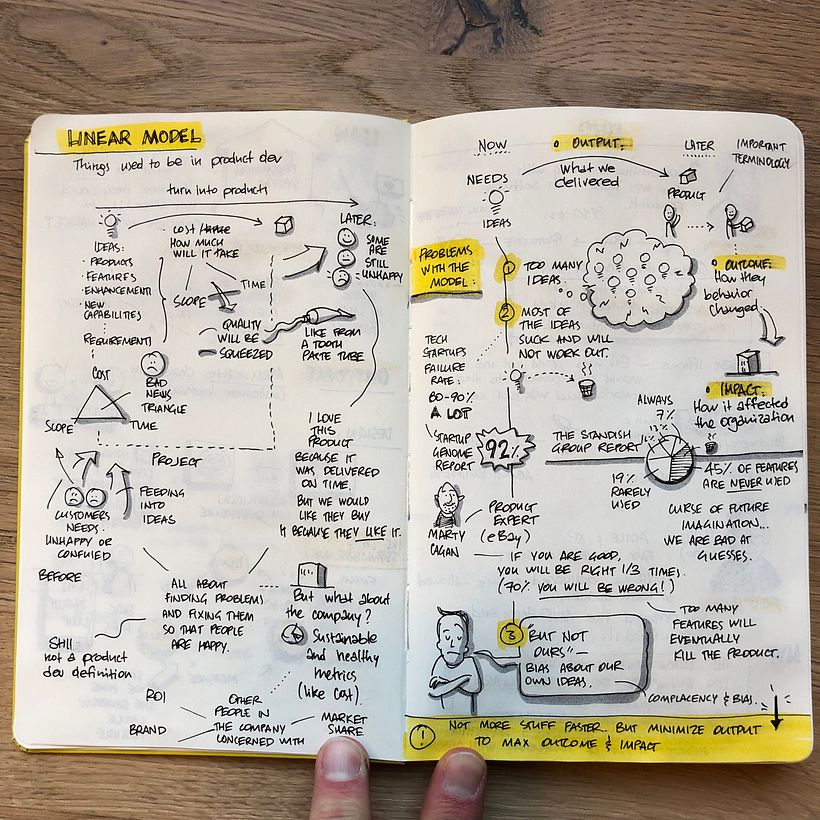 LINEAR MODEL
Things used to be in product dev
turn into products
IDEAS:
• PRODUCTS
• FEATURES
• ENHANCEMENTS
• NEW
CAPABILITIES
REQUIREMENTS
COST
HOW MUCH
WILL IT TAKE
SCOPE
TIME
QUALITY
WILL BE
SQUEEZED
LIKE FROM
A TOOTH
PASTE TUBE
LATER:
SOME
ARE
STILL
UNHAPPY
COST
SCOPE
TIME
BAD
NEWS
TRIANGLE
PROJECT
CUSTOMERS
NEEDS:
UNHAPPY OR
CONFUSED
FEEDING
INTO
IDEAS
I LOVE
THIS
PRODUCT
BECAUSE IT
WAS DELIVERED
ON TIME.
BUT WE WOULD
LIKE THEY BUY
IT BECAUSE THEY LIKE IT.
BEFORE
ALL ABOUT
FINDING PROBLEMS
AND FIXING THEM
SO THAT PEOPLE
ARE HAPPY.
Still
not a product
dev definition
But what about
the company?
Sustainable
and healthy
metrics
(like cost).
ROI
BRAND
OTHER
PEOPLE IN
THE COMPANY
CONCERNED WITH
MARKET
SHARE
NOW
• OUTPUT:
What we
delivered
LATER
IMPORTANT
TERMINOLOGY
NEEDS
IDEAS
PRODUCT
PROBLEMS
WITH THE
MODEL:
1 TOO MANY
IDEAS.
2 MOST OF
THE IDEAS
SUCK AND WILL
NOT WORK OUT.
• OUTCOME:
How they
behavior
changed
• IMPACT:
How it affected
the organization
TECH
STARTUPS
FAILURE
RATE:
80-90%
A LOT
STARTUP
GENOME
REPORT
92%
THE STANDISH
GROUP REPORT
ALWAYS
7%
13%
16%
19%
RARELY
USED
45% OF FEATURES
ARE NEVER USED
CURSE OF FUTURE
IMAGINATION...
WE ARE BAD AT
GUESSES.
MARTY
CAGAN
PRODUCT
EXPERT
(eBay)
IF YOU ARE GOOD,
YOU WILL BE RIGHT 1/3 TIMES.
(70% YOU WILL BE WRONG!)
TOO MANY
FEATURES WILL
EVENTUALLY
KILL THE PRODUCT.
3 "BUT NOT
OURS" —
BIAS ABOUT OUR
OWN IDEAS.
COMPLACENCY & BIAS.
! NOT MORE STUFF FASTER.. BUT MINIMIZE OUTPUT
TO MAX OUTCOME & IMPACT